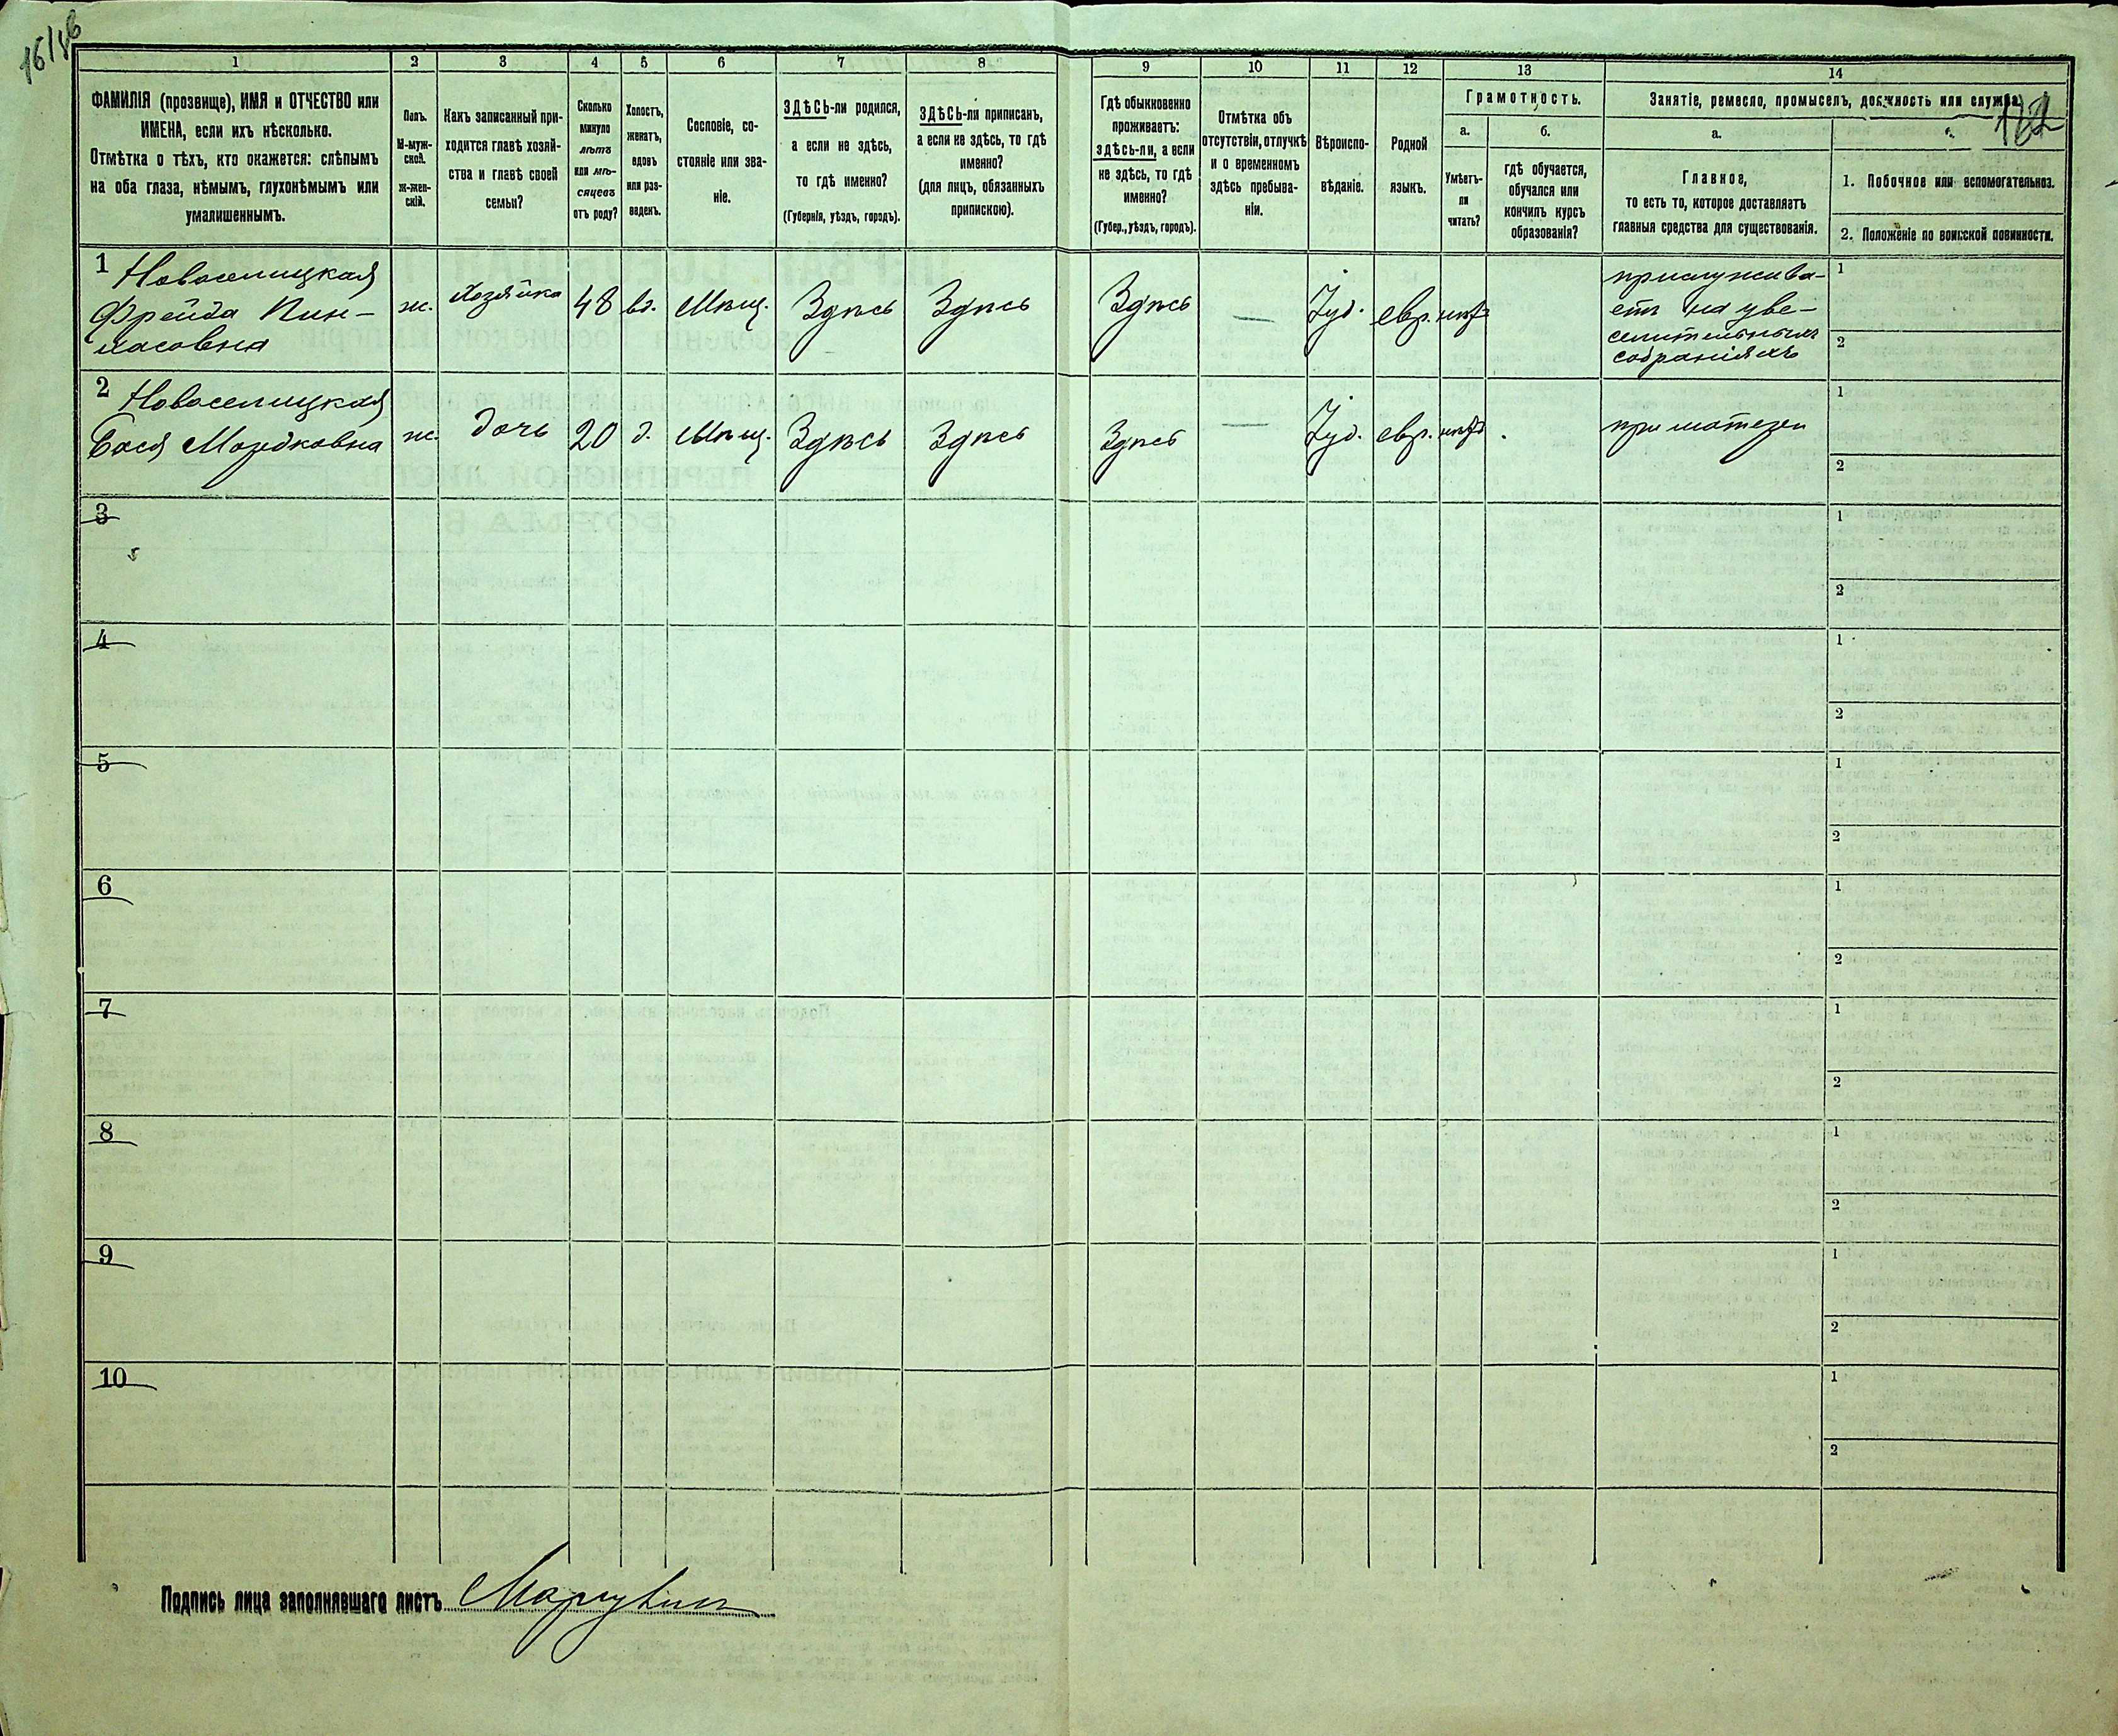 16/86
182
1 2 3 4 5 6 7 8 9 10 11 12 13 14
ФАМИЛІЯ (прозвище), ИМЯ и ОТЧЕСТВО или
ИМЕНА, если ихъ нѣсколько.
Отмѣтка о тѣхъ, кто окажется: слѣпымъ
на оба глаза, нѣмымъ, глухонѣмымъ или
умалишеннымъ.
Полъ.
М-муж-
ской.
ж-жен-
скій.
Какъ записанный при-
ходится главѣ хозяй-
ства и главѣ своей
семьи?
Сколько
минуло
лѣтъ
или мѣ-
сяцевъ
отъ роду?
Холостъ,
женатъ,
вдовъ
или раз-
веденъ.
Сословіе, со-
стояніе или зва-
ніе.
ЗДѢСЬ-ли родился,
а если не здѣсь,
то гдѣ именно?
(Губернія, уѣздъ, городъ).
ЗДѢСЬ-ли приписан,
а если не здѣсь, то гдѣ
именно?
(для лицъ, обязанныхъ
припискою).
Гдѣ обыкновенно
проживаетъ:
здѣсь-ли, а если
не здѣсь, то гдѣ
именно?
(Губер., уѣздъ, городъ).
Отмѣтка объ
отсутствіи, отлучкѣ
и о временномъ
здѣсь пребыва-
ніи.
Вѣроиспо-
вѣданіе.
Родной
языкъ.
Грамотность.
а. б.
Умѣетъ-
ли
читать?
гдѣ обучается,
обучался или
кончилъ курсъ
образованія?
Занятіе, ремесло, промыселъ, должность или служба.
а.
Главное,
то есть то, которое доставляетъ
главныя средства для существованія.
1. Побочное или вспомогательноз.
2. Положеніе по воинской повинности.
1 Новоселицкая
Фрейда Пин-
хасовна
ж. Хозяйка 48 вд. Мѣщ. Здѣсь Здѣсь Здѣсь — Іуд. евр. нѣтъ
прислужива-
етъ на уве-
селительныхъ
собраніяхъ
1
2
2 Новоселицкая
Бася Мордковна
ж. дочь 20 д. Мѣщ. Здѣсь Здѣсь Здѣсь — Іуд. евр. нѣтъ
при матери
1
2
3
1
2
4
1
2
5
1
2
6
1
2
7
1
2
8
1
2
9
1
2
10
1
2
Подпись лица заполнявшаго листъ